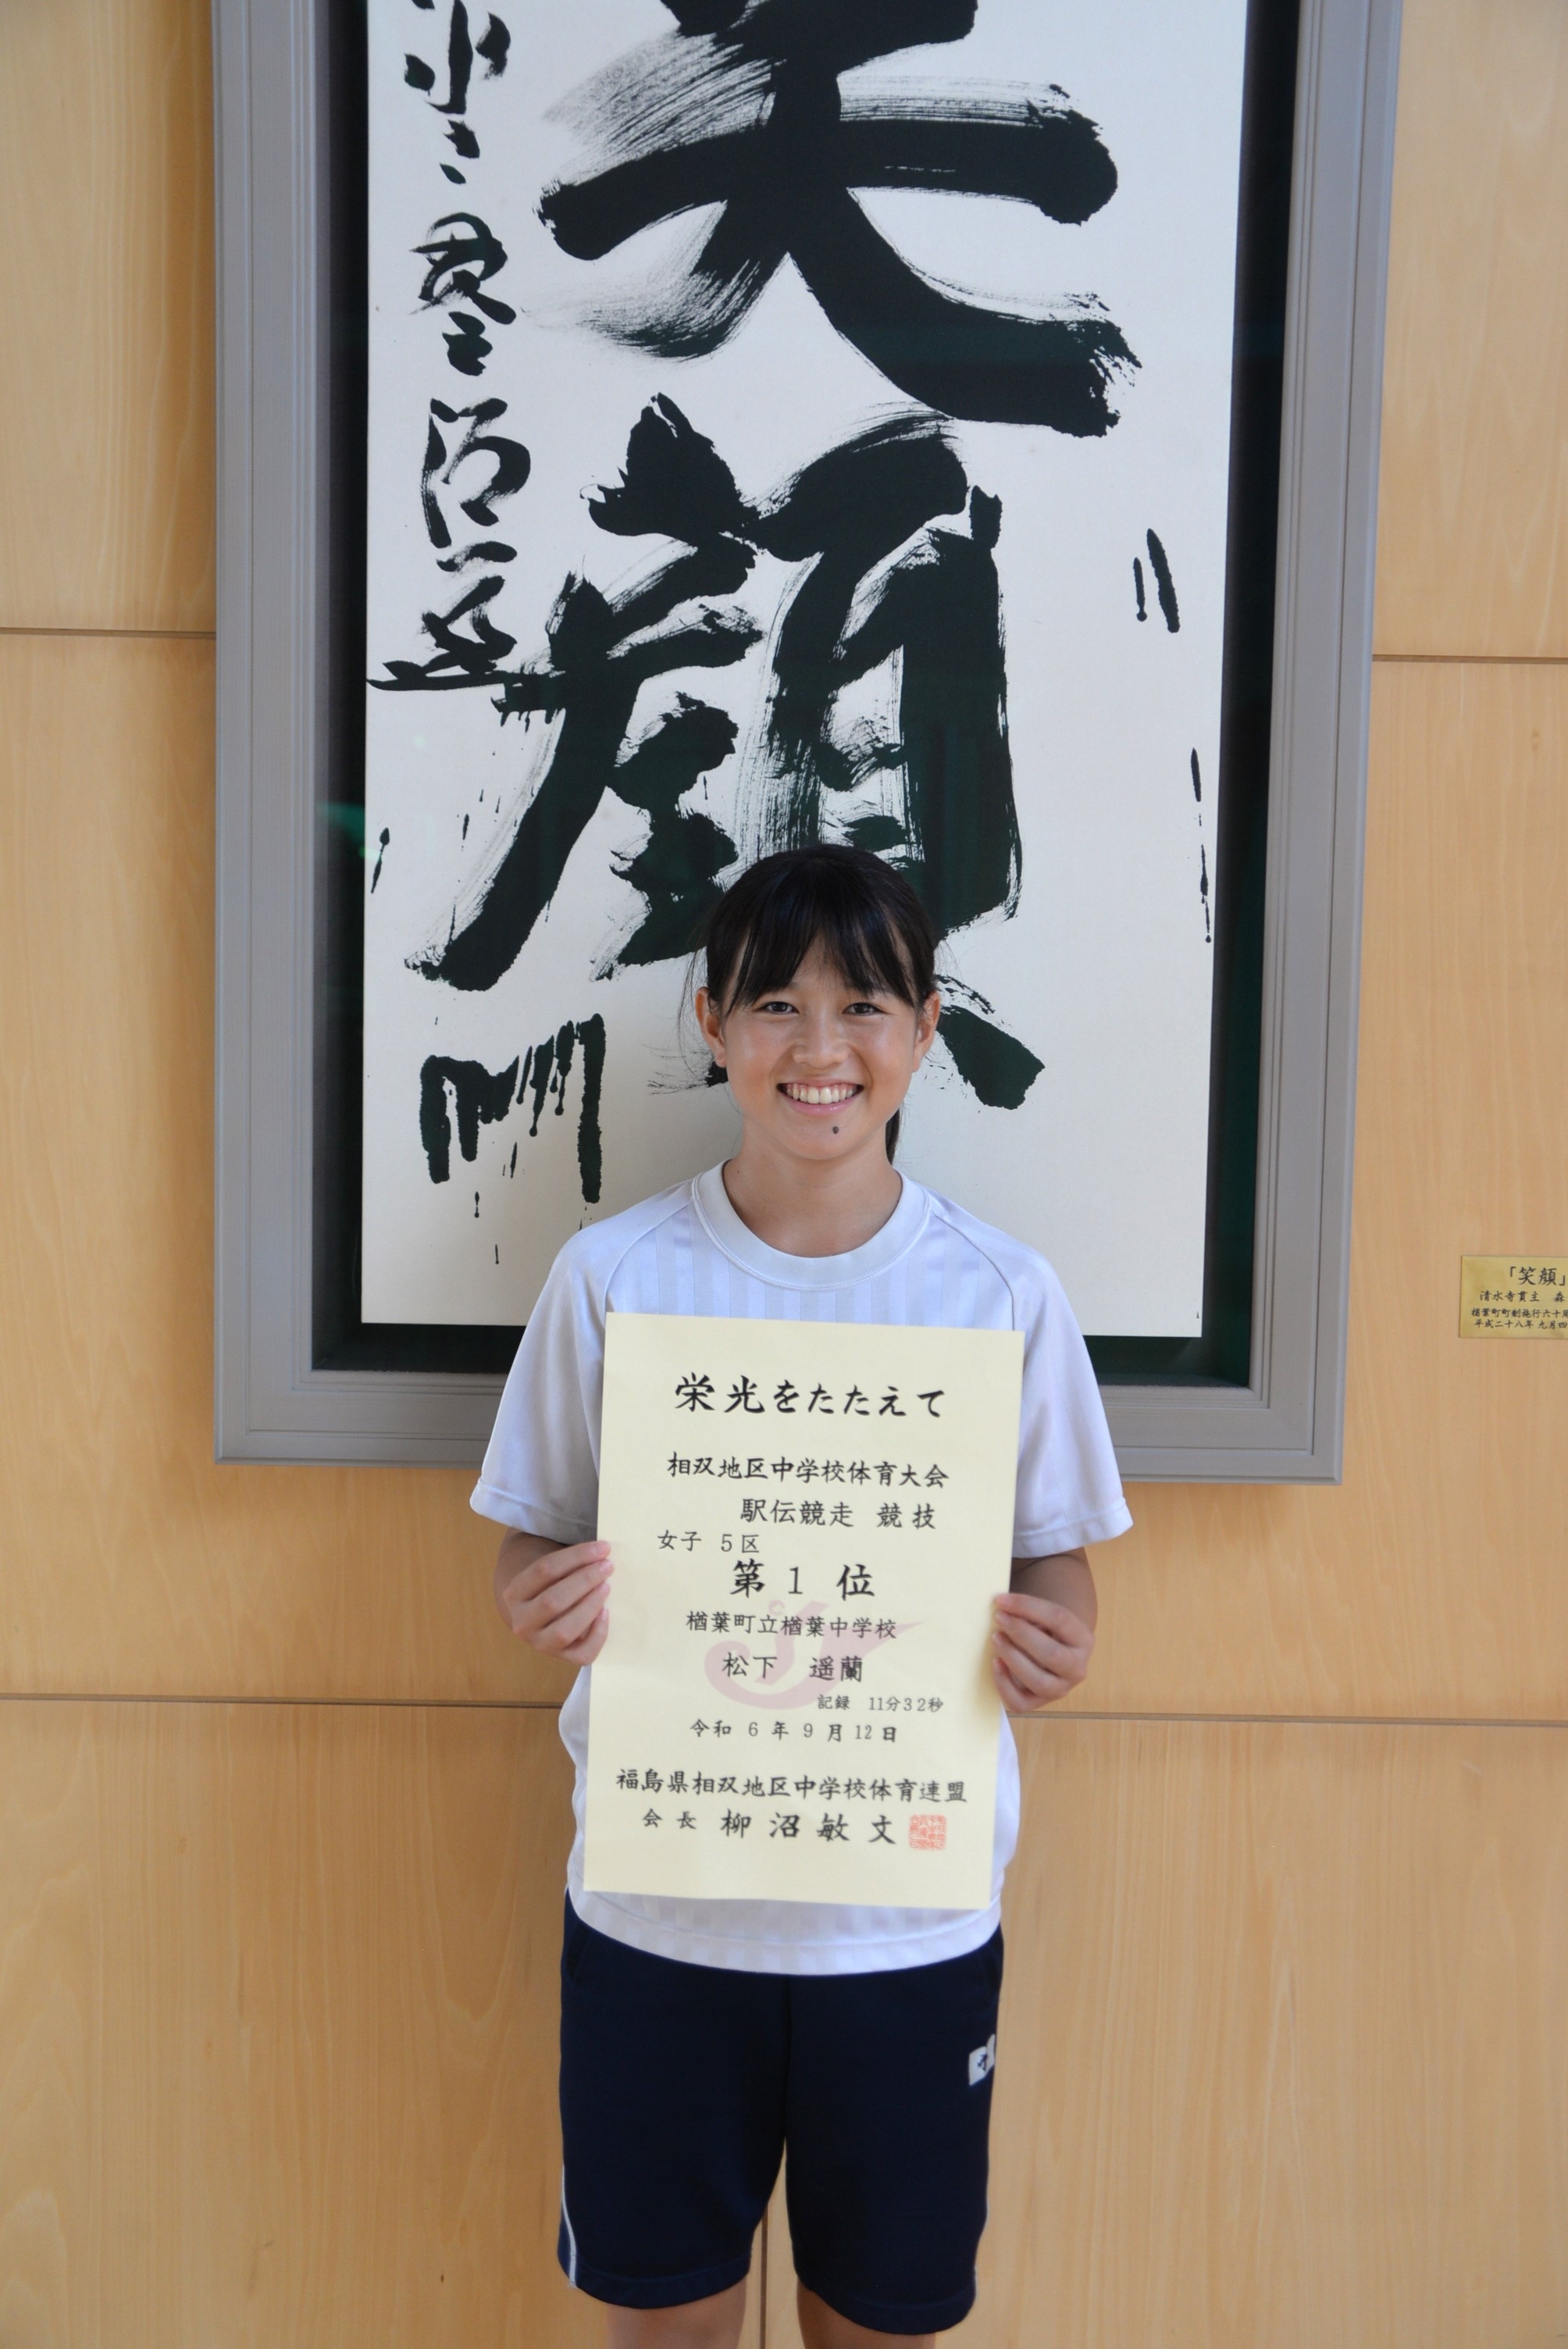 笑顔
「笑顔」
清水寺貫主　森
楢葉町町制施行六十周
平成二十八年 九月四
栄光をたたえて
相双地区中学校体育大会
駅伝競走 競技
女子 5区
第 1 位
楢葉町立楢葉中学校
松下 遥蘭
記録 11分32秒
令和 6 年 9 月 12 日
福島県相双地区中学校体育連盟
会長 柳沼敏文